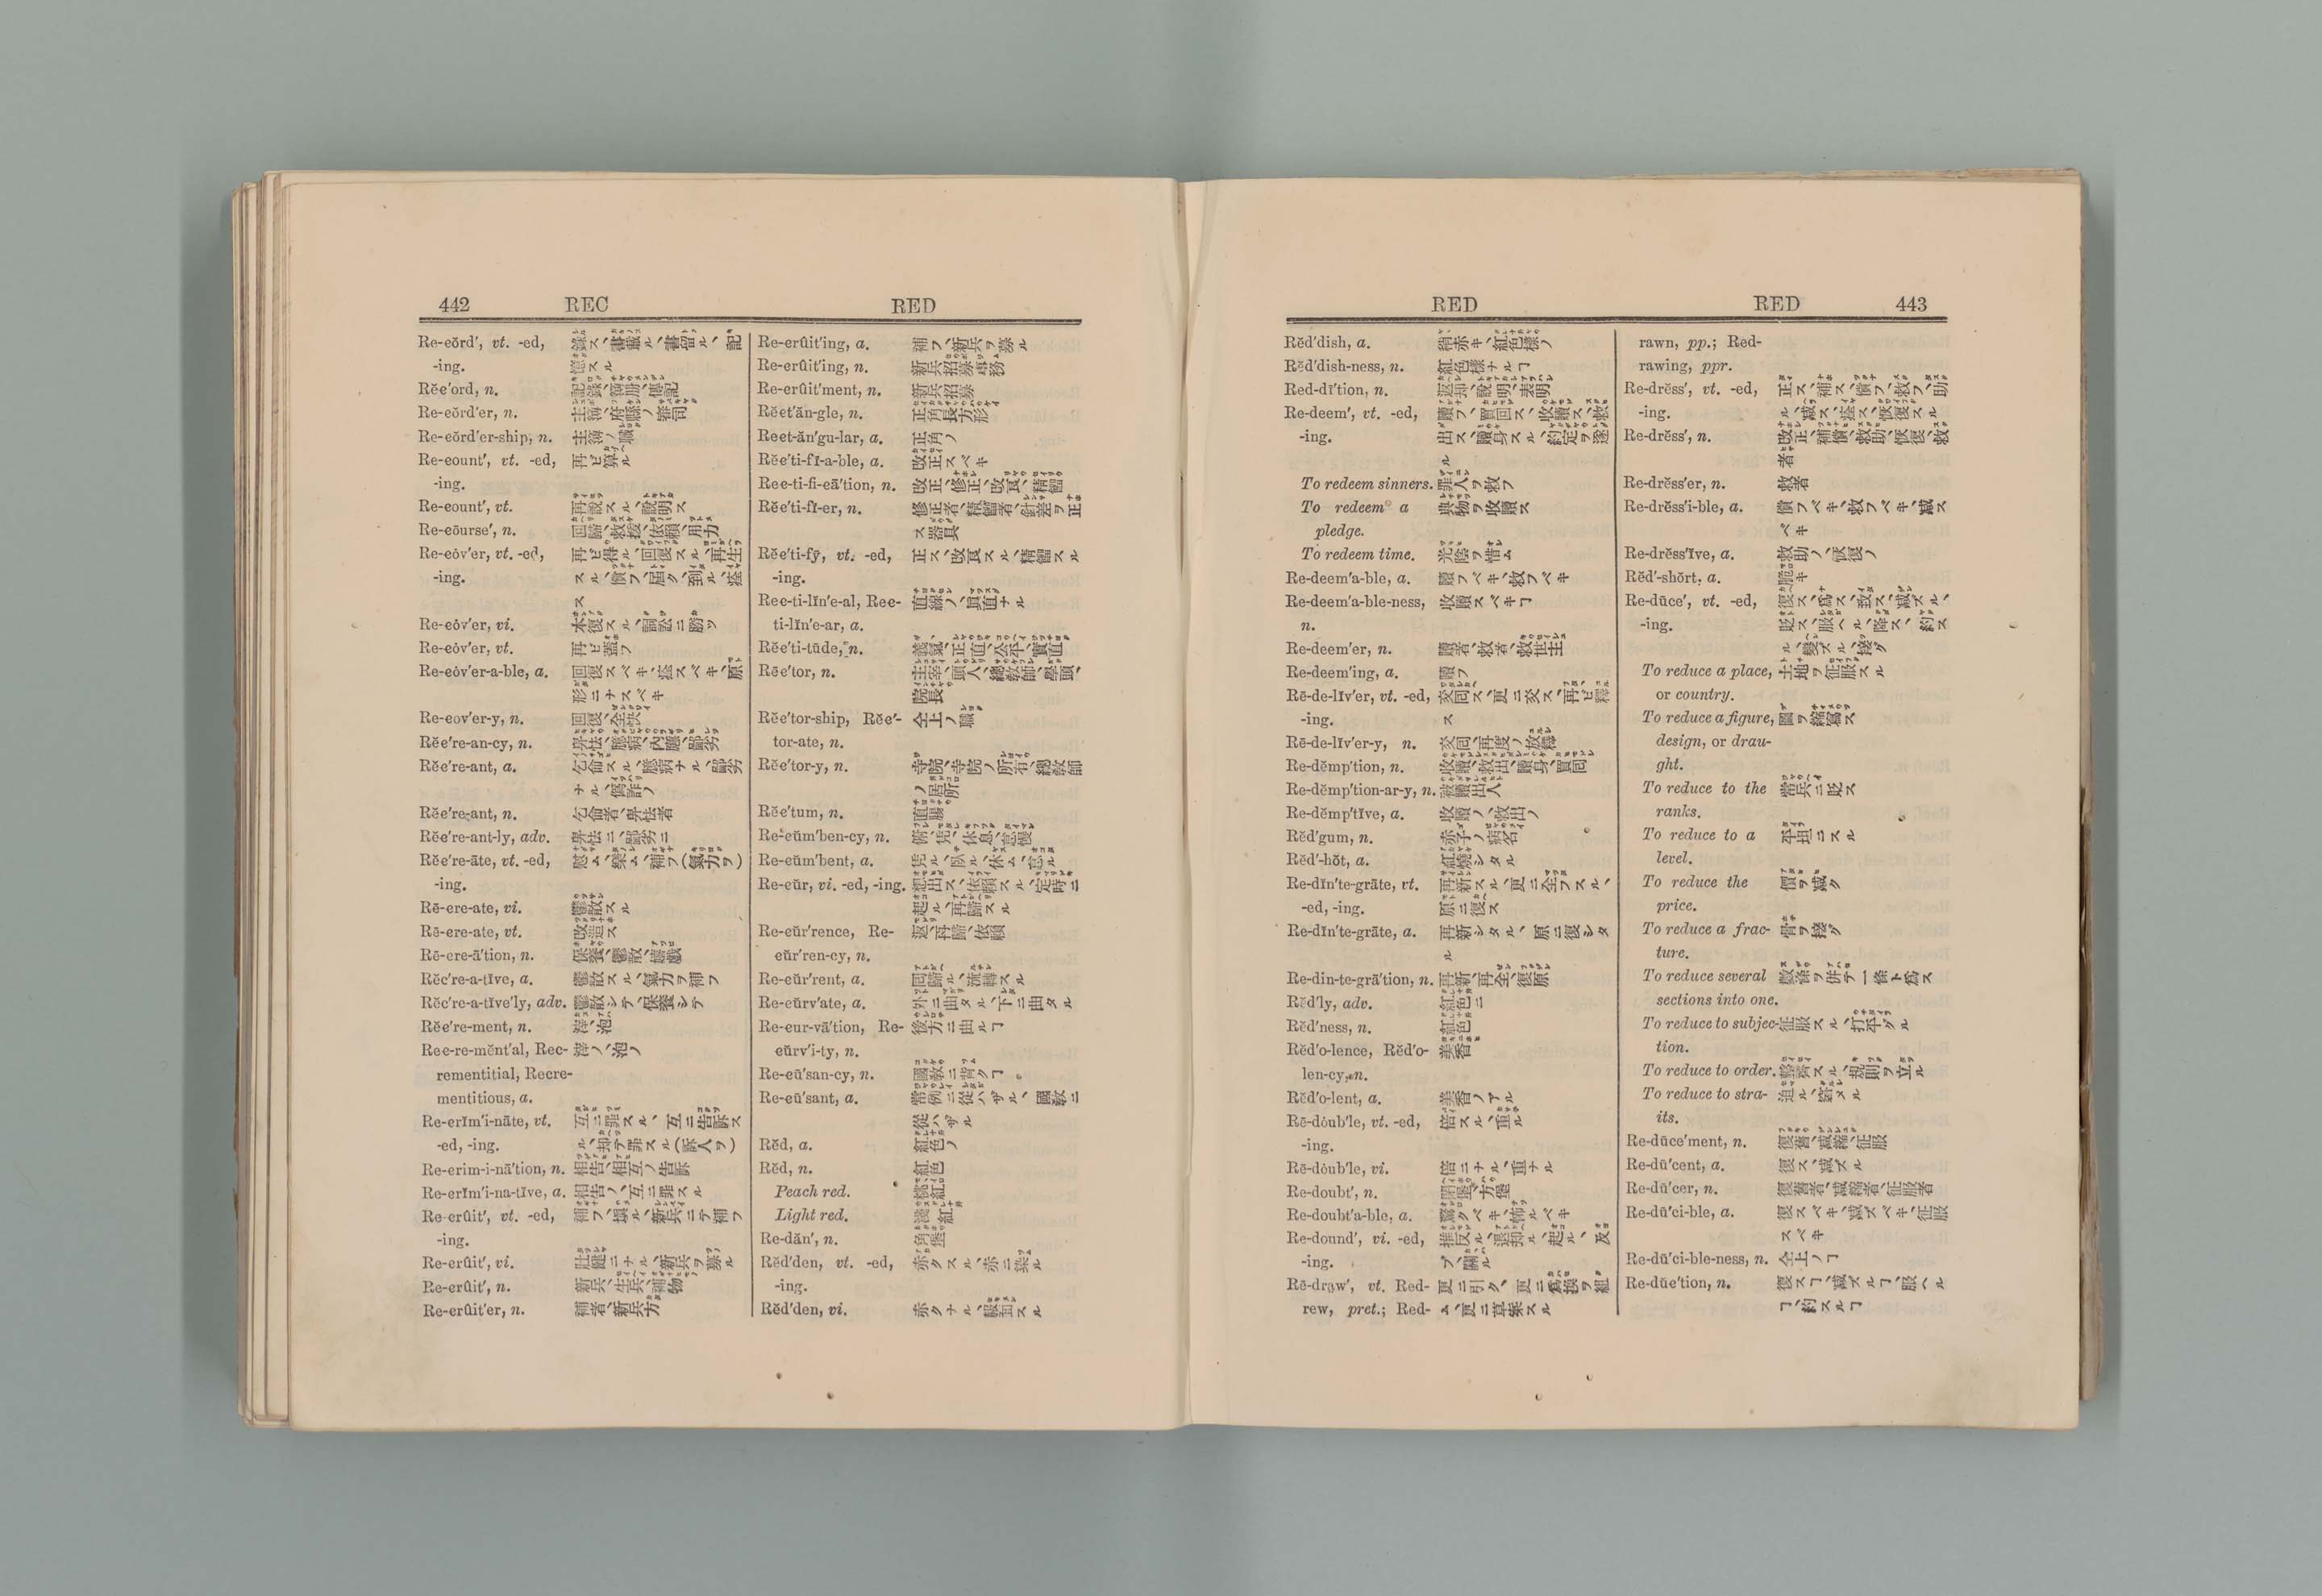 442 REC RED
Re-cŏrd', vt. -ed, 錄ス、書載ル、書留ル、記
-ing. 憶スル
Rĕc'ord, n. 記錄、簡册、傳記
Re-cŏrd'er, n. 主簿、府縣ノ宰司
Re-cŏrd'er-ship, n. 主簿ノ職
Re-count', vt. -ed, 再ビ算ル
-ing.
Re-count', vt. 再說スル、說明ス
Re-cōurse', n. 回歸、救援、依賴、用力
Re-cȯv'er, vt. -ed, 再ビ得ル、回復スル、再生
-ing. スル、償フ、屆ク、到ル、痊
ス
Re-cȯv'er, vi. 本復スル、詞訟ニ勝ツ
Re-cȯv'er, vt. 再ビ蓋フ
Re-cȯv'er-a-ble, a. 回復スベキ、痊スベキ、原
形ニナスベキ
Re-cov'er-y, n. 回復、全快
Rĕc're-an-cy, n. 卑怯、臆病、內應、鄙劣
Rĕc're-ant, a. 乞侖スル、臆病ナル、鄙劣
ナル、僞詐ノ
Rĕc're-ant, n. 乞侖者、卑怯者
Rĕc're-ant-ly, adv. 卑怯ニ、鄙劣ニ
Rĕc're-āte, vt. -ed, 慰ム、樂ム、補フ(氣力ヲ)
-ing.
Rē-cre-ate, vi. 鬱散スル
Rē-cre-ate, vt. 改造ス
Rē-cre-ā'tion, n. 保養、鬱散、嬉戲
Rĕc're-a-tĭve, a. 鬱散スル、氣力ヲ補フ
Rĕc're-a-tĭve'ly, adv. 鬱散シテ、保養シテ
Rĕc're-ment, n. 滓、泡
Rec-re-mĕnt'al, Rec- 滓ノ、泡ノ
rementitial, Recre-
mentitious, a.
Re-crĭm'i-nāte, vt. 互ニ罪スル、互ニ告訴ス
-ed, -ing. ル、却テ罪スル(訴人ヲ)
Re-crim-i-nā'tion, n. 相告、相互ノ告訴
Re-crĭm'i-na-tĭve, a. 相告ノ、互ニ罪スル
Re-crûit', vt. -ed, 補フ、塡ル、新兵ニテ補フ
-ing.
Re-crûit', vi. 壯健ニナル、新兵ヲ募ル
Re-crûit', n. 新兵、生兵、補物
Re-crûit'er, n. 補者、新兵方
Re-crûit'ing, a. 補フ、新兵ヲ募ル
Re-crûit'ing, n. 新兵招募專務
Re-crûit'ment, n. 新兵招募
Rĕct'ăn-gle, n. 正角長方形
Rect-ăn'gu-lar, a. 正角ノ
Rĕc'ti-fī-a-ble, a. 改正スベキ
Rec-ti-fi-cā'tion, n. 改正、修正、改良、精餾
Rĕc'ti-fī-er, n. 修正者、精餾者、針差ヲ正
ス器具
Rĕc'ti-fȳ, vt. -ed, 正ス、改良スル、精餾スル
-ing.
Rec-ti-lĭn'e-al, Rec- 直線ノ、眞直ナル
ti-lĭn'e-ar, a.
Rĕc'ti-tūde, n. 義氣、正直、公平、實直
Rĕc'tor, n. 主宰、頭人、總敎師、學頭、
院長
Rĕc'tor-ship, Rĕc'- 仝上ノ職
tor-ate, n.
Rĕc'tor-y, n. 寺院、寺院ノ所有、總敎師
ノ居所
Rĕc'tum, n. 直腸
Re-cŭm'ben-cy, n. 俯、凭、休息、怠慢
Re-cŭm'bent, a. 凭ル、臥ル、休ム、怠ル
Re-cŭr, vi. -ed, -ing. 想出ス、依賴スル、定時ニ
起ル、再歸スル
Re-cŭr'rence, Re- 返、再歸、依賴
cŭr'ren-cy, n.
Re-cŭr'rent, a. 回歸ル、流轉スル
Re-cŭrv'ate, a. 外ニ曲タル、下ニ曲タル
Re-cur-vā'tion, Re- 後方ニ曲ルヿ
cŭrv'i-ty, n.
Re-cū'san-cy, n. 國敎ニ背クヿ
Re-cū'sant, a. 常例ニ從ハザル、國敎ニ
從ハザル
Rĕd, a. 紅色ノ
Rĕd, n. 紅色
Peach red. 桃紅
Light red. 淺紅
Re-dăn', n. 角堡
Rĕd'den, vt. -ed, 赤クスル、赤ニ染ル
-ing.
Rĕd'den, vi. 赤クナル、赧面スル
RED RED 443
Rĕd'dish, a. 稍赤キ、紅色樣ノ
Rĕd'dish-ness, n. 紅色樣ナルヿ
Red-dĭ'tion, n. 返却、說明、表明
Re-deem', vt. -ed, 贖フ、買回ス、收贖ス、救ヒ
-ing. 出ス、贖身スル、約定ヲ遂
ル
To redeem sinners. 罪人ヲ救フ
To redeem a 典物ヲ收贖ス
pledge.
To redeem time. 光陰ヲ惜ム
Re-deem'a-ble, a. 贖フベキ、救フベキ
Re-deem'a-ble-ness, 收贖スベキヿ
n.
Re-deem'er, n. 贖者、救者、救世主
Re-deem'ing, a. 贖フ
Rē-de-lĭv'er, vt. -ed, 交回ス、更ニ交ス、再ビ釋
-ing. ス
Rē-de-lĭv'er-y, n. 交回、再度ノ放釋
Re-dĕmp'tion, n. 收贖、救出、贖身、買回
Re-dĕmp'tion-ar-y, n. 被贖出人
Re-dĕmp'tĭve, a. 收贖ノ、救出ノ
Rĕd'gum, n. 赤子ノ病名
Rĕd'-hŏt, a. 紅燒シタル
Re-dĭn'te-grāte, vt. 再新スル、更ニ全フスル、
-ed, -ing. 原ニ復ス
Re-dĭn'te-grāte, a. 再新シタル、原ニ復シタ
ル
Re-din-te-grā'tion, n. 再新、再全、復原
Rĕd'ly, adv. 紅色ニ
Rĕd'ness, n. 紅色
Rĕd'o-lence, Rĕd'o- 美香
len-cy, n.
Rĕd'o-lent, a. 美香ノアル
Re-dȯub'le, vt. -ed, 倍スル、重ル
-ing.
Rē-dȯub'le, vi. 倍ニナル、重ナル
Re-doubt', n. 閉堡、方堡
Re-doubt'a-ble, a. 驚クベキ、怖ルベキ
Re-dound', vi. -ed, 推反ル、退却ル、起ル、及
-ing. ブ、關ル
Rē-draw', vt. Red- 更ニ引ク、更ニ爲換ヲ組
rew, pret.; Red- ム、更ニ草案スル
rawn, pp.; Red-
rawing, ppr.
Re-drĕss', vt. -ed, 正ス、補ス、償フ、救フ、助
-ing. ル、減ス、痊ス、恢復スル
Re-drĕss', n. 改正、補償、救助、恢復、救
者
Re-drĕss'er, n. 救者
Re-drĕss'i-ble, a. 償フベキ、救フベキ、減ス
ベキ
Re-drĕss'ĭve, a. 救助ノ、恢復ノ
Rĕd'-shŏrt, a. 脆キ
Re-dūce', vt. -ed, 復ス、爲ス、致ス、減ズル、
-ing. 貶ス、服ヘル、降ス、約ス
ル、變ズル、接グ
To reduce a place, 土地ヲ征服スル
or country.
To reduce a figure, 圖ヲ縮寫ス
design, or drau-
ght.
To reduce to the 常兵ニ貶ス
ranks.
To reduce to a 平坦ニスル
level.
To reduce the 價ヲ減ク
price.
To reduce a frac- 骨ヲ接グ
ture.
To reduce several 數ヲ併テ一條ト爲ス
sections into one.
To reduce to subjec- 征服スル、打平グル
tion.
To reduce to order. 整齊スル、規則ヲ立ル
To reduce to stra- 迫ル、窘メル
its.
Re-dūce'ment, n. 復舊、減縮、征服
Re-dū'cent, a. 復ス、減ズル
Re-dū'cer, n. 復舊者、減縮者、征服者
Re-dū'ci-ble, a. 復スベキ、減ズベキ、征服
スベキ
Re-dū'ci-ble-ness, n. 仝上ノヿ
Re-dŭc'tion, n. 復スヿ、減ズルヿ、服ヘル
ヿ、約スルヿ